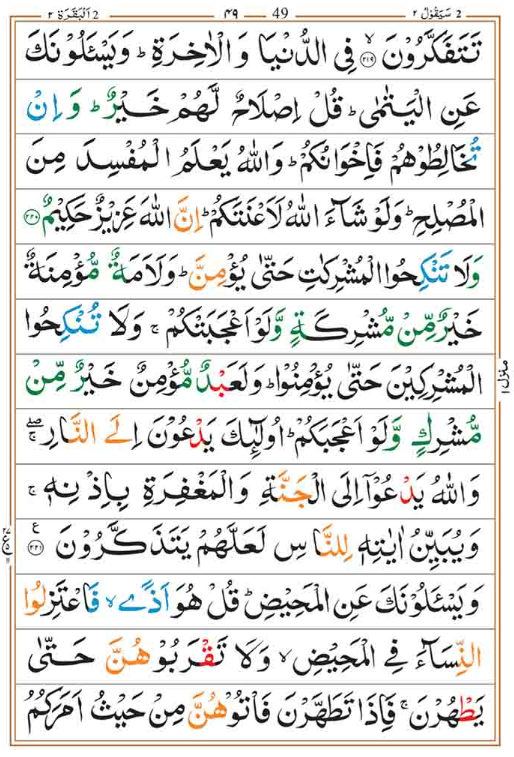 2 اَلْبَقَرَة ٢ ٤٩ 49 2 سَیَقُوْلُ ٢
تَتَفَكَّرُوْنَ ﴿۲۱۹﴾ۙ فِي الدُّنْيَا وَ الْاٰخِرَةِ ؕ وَيَسْـَٔلُوْنَكَ
عَنِ الْيَتٰمٰى ؕ قُلْ اِصْلَاحٌ لَّهُمْ خَيْرٌ ؕ وَ اِنْ
تُخَالِطُوْهُمْ فَاِخْوَانُكُمْ ؕ وَاللّٰهُ يَعْلَمُ الْمُفْسِدَ مِنَ
الْمُصْلِحِ ؕ وَلَوْ شَآءَ اللّٰهُ لَاَعْنَتَكُمْ ؕ اِنَّ اللّٰهَ عَزِيْزٌ حَكِيْمٌ ﴿۲۲۰﴾
وَلَا تَنْكِحُوا الْمُشْرِكٰتِ حَتّٰى يُؤْمِنَّ ؕ وَلَاَمَةٌ مُّؤْمِنَةٌ
خَيْرٌ مِّنْ مُّشْرِكَةٍ وَّلَوْ اَعْجَبَتْكُمْ ۚ وَلَا تُنْكِحُوا
الْمُشْرِكِيْنَ حَتّٰى يُؤْمِنُوْا ؕ وَلَعَبْدٌ مُّؤْمِنٌ خَيْرٌ مِّنْ
مُّشْرِكٍ وَّلَوْ اَعْجَبَكُمْ ؕ اُولٰٓئِكَ يَدْعُوْنَ اِلَى النَّارِ ۖۚ
وَاللّٰهُ يَدْعُوْٓا اِلَى الْجَنَّةِ وَالْمَغْفِرَةِ بِاِذْنِهٖ ۚ
وَيُبَيِّنُ اٰيٰتِهٖ لِلنَّاسِ لَعَلَّهُمْ يَتَذَكَّرُوْنَ ﴿۲۲۱﴾ ع
وَيَسْـَٔلُوْنَكَ عَنِ الْمَحِيْضِ ؕ قُلْ هُوَ اَذًى ۙ فَاعْتَزِلُوا
النِّسَآءَ فِي الْمَحِيْضِ ۙ وَلَا تَقْرَبُوْهُنَّ حَتّٰى
يَطْهُرْنَ ۚ فَاِذَا تَطَهَّرْنَ فَاْتُوْهُنَّ مِنْ حَيْثُ اَمَرَكُمُ
منزل ١